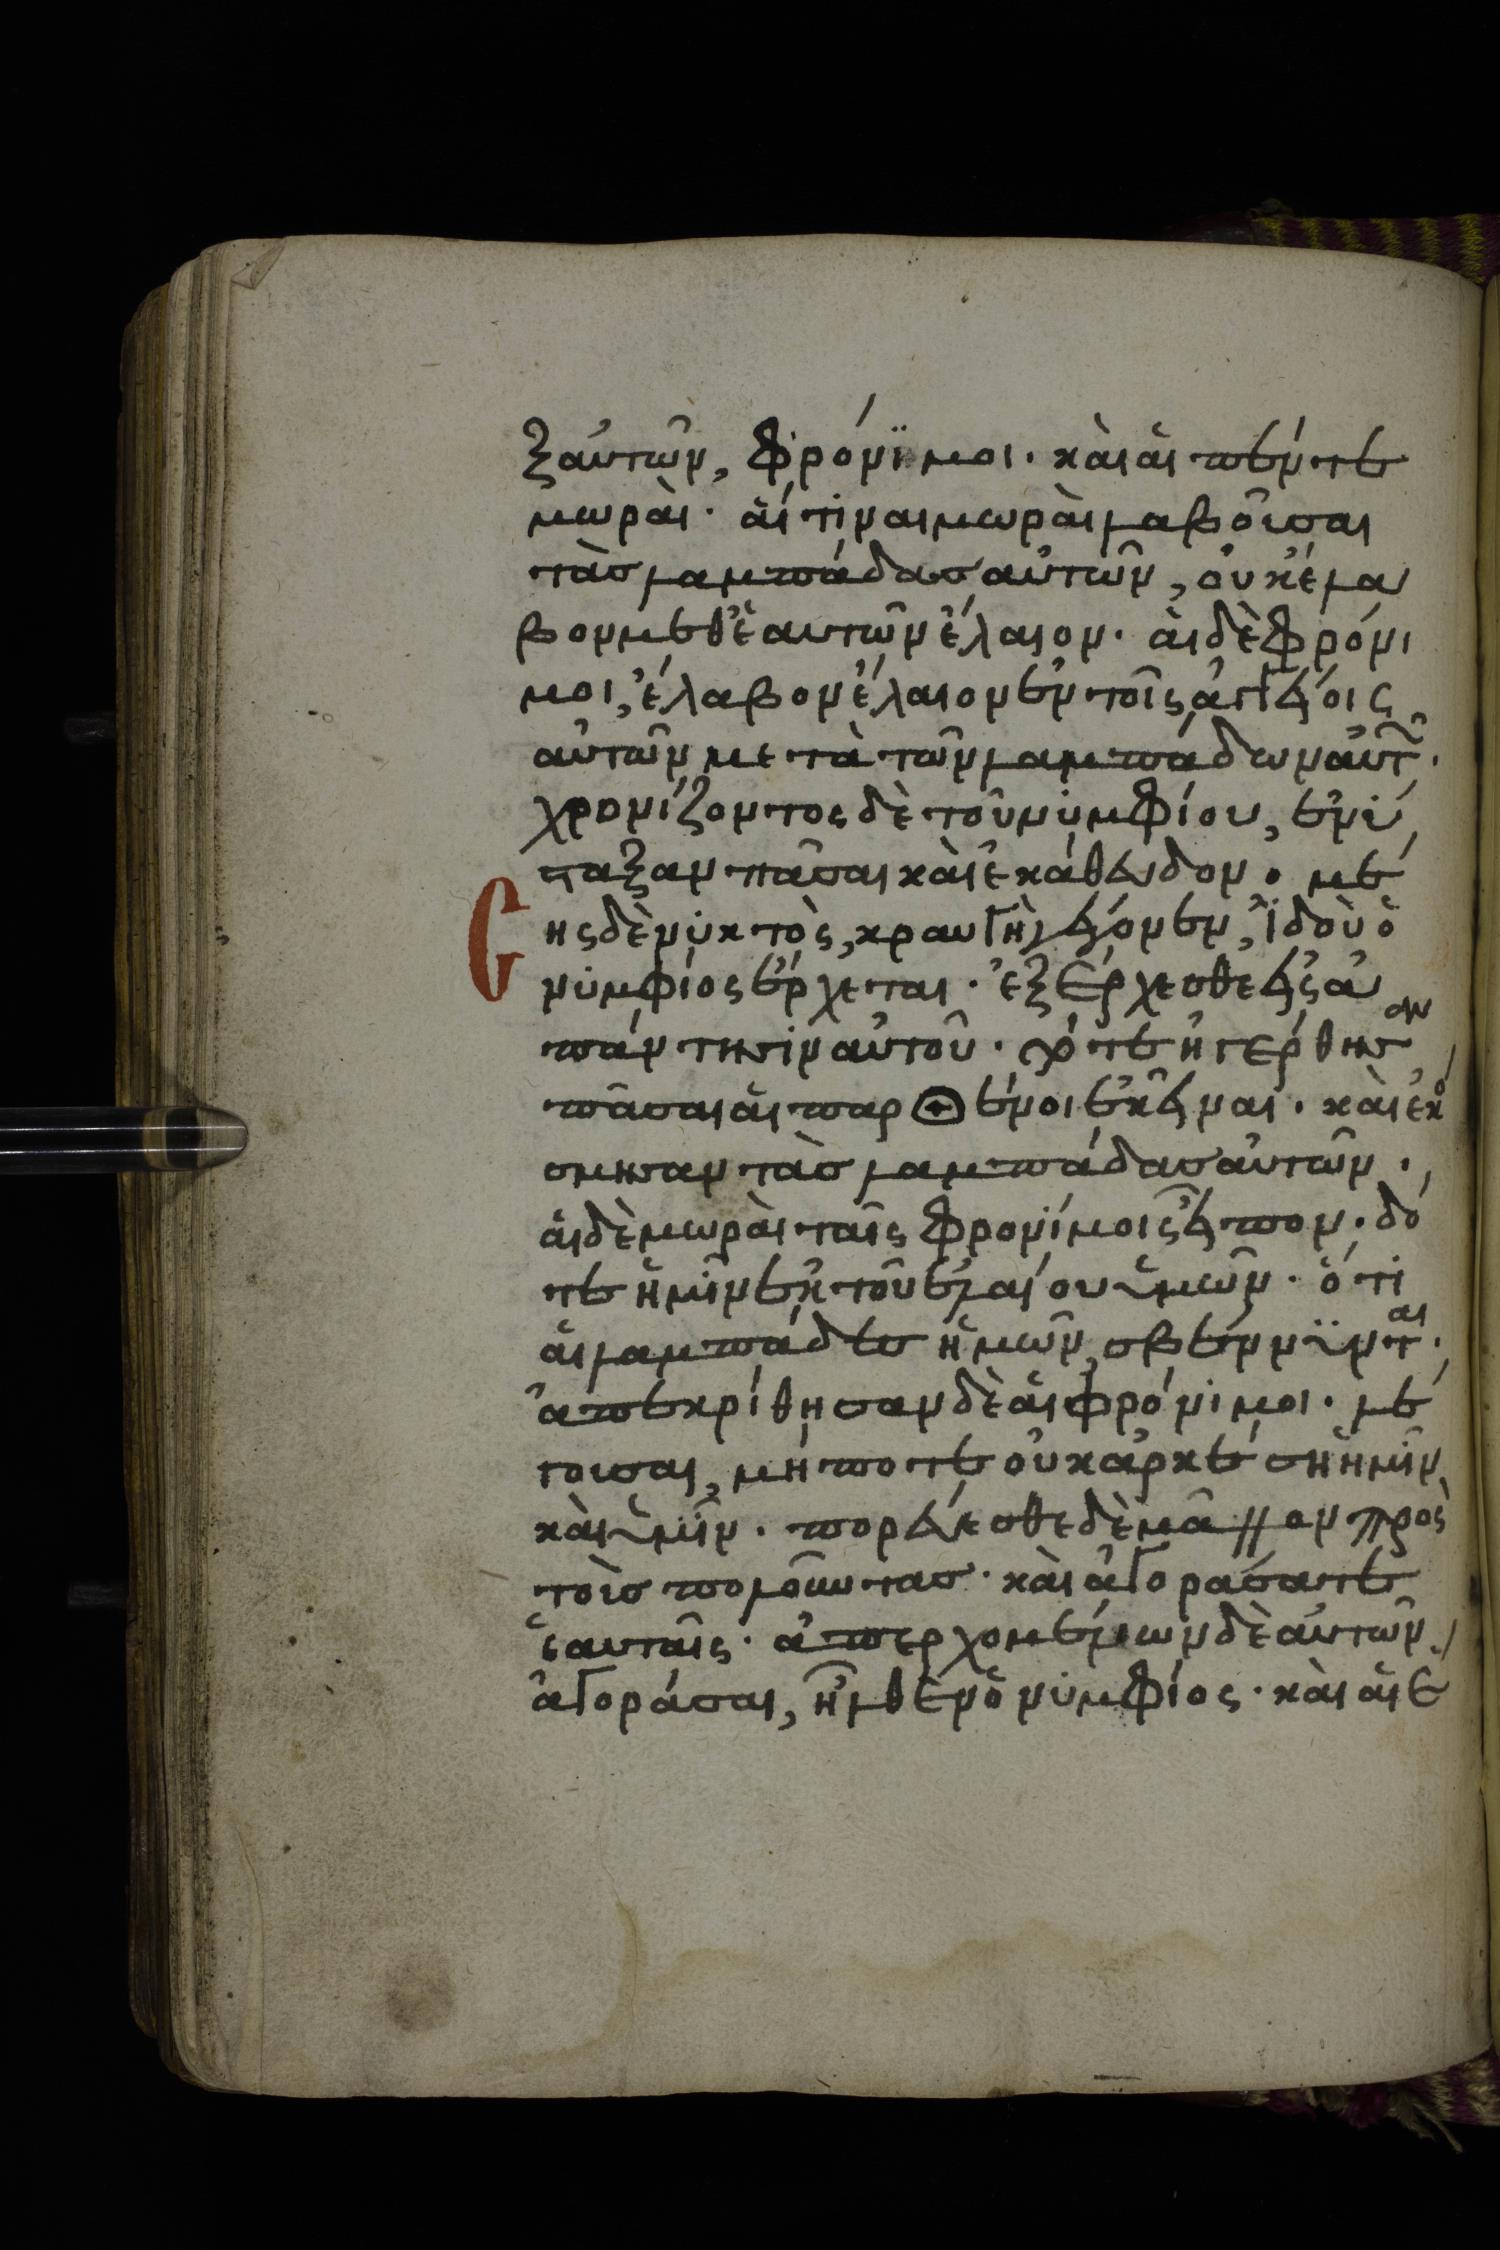 ξ αὐτῶν, φρόνϊμοι. καὶ αἱ πέντε
μωραὶ. αἵτιναι μωραὶ λαβοῦσαι
τὰσ λαμπάδασ αὐτῶν, οὐκ έλα
βον μεθ ἑαυτῶν ἔλαιον. αἱ δὲ φρόνι
μοι, ἔλαβον ἔλαιον ἐν τοῖς ἀγγείοις
αὐτῶν μετὰ τῶν λαμπάδων αὐτῶ.
χρονίζοντος δὲ τοῦ νυμφίου, ἐνύ
σταξαν πᾶσαι καὶ ἐκάθευδον. μέ
σης δὲ νυκτὸς, κραυγὴ γέγονεν, ϊδοὺ ὁ
νυμφίος ἔρχεται. ἐξέρχεσθε εἰς ἀ
πάντησιν αὐτοῦ. τότε ἠγέρθησαν
πᾶσαι αἱ παρθένοι ἐκεῖναι. καὶ ἐκό
σμησαν τὰσ λαμπάδασ αὐτῶν.
αἱ δὲ μωραὶ ταῖς φρονίμοις εἶπον. δό
τε ἡμῖν ἐκ τοῦ ἐλαίου ὑμῶν. ὅτι
αἱ λαμπάδεσ ἡμῶν, σβέννϋνται.
ἀπεκρίθησαν δὲ αἱ φρόνιμοι. λέ
γουσαι, μήποτε οὐκ ἀρκέση ἡμῖν
καὶ ὑμῖν. πορεύεσθε δὲ μᾶλλον πρὸς
τοὺσ πωλοῦντασ. καὶ ἀγοράσατε
ἑαυταῖς. ἀπερχομένων δὲ αὐτῶν
ἀγοράσαι, ἦλθεν ὁ νυμφίος. καὶ αἱ ἕ